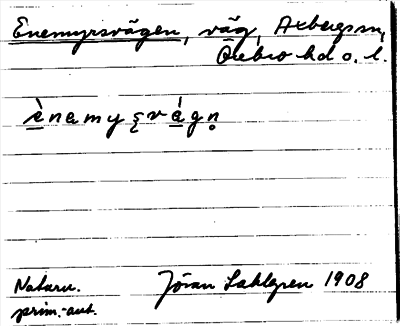 Enemyrsvägen, väg, Axbergs sn,
Örebro hd o. l.
ènamyʂvágn̥
Naturn. Jöran Sahlgren 1908
prim.-aut.